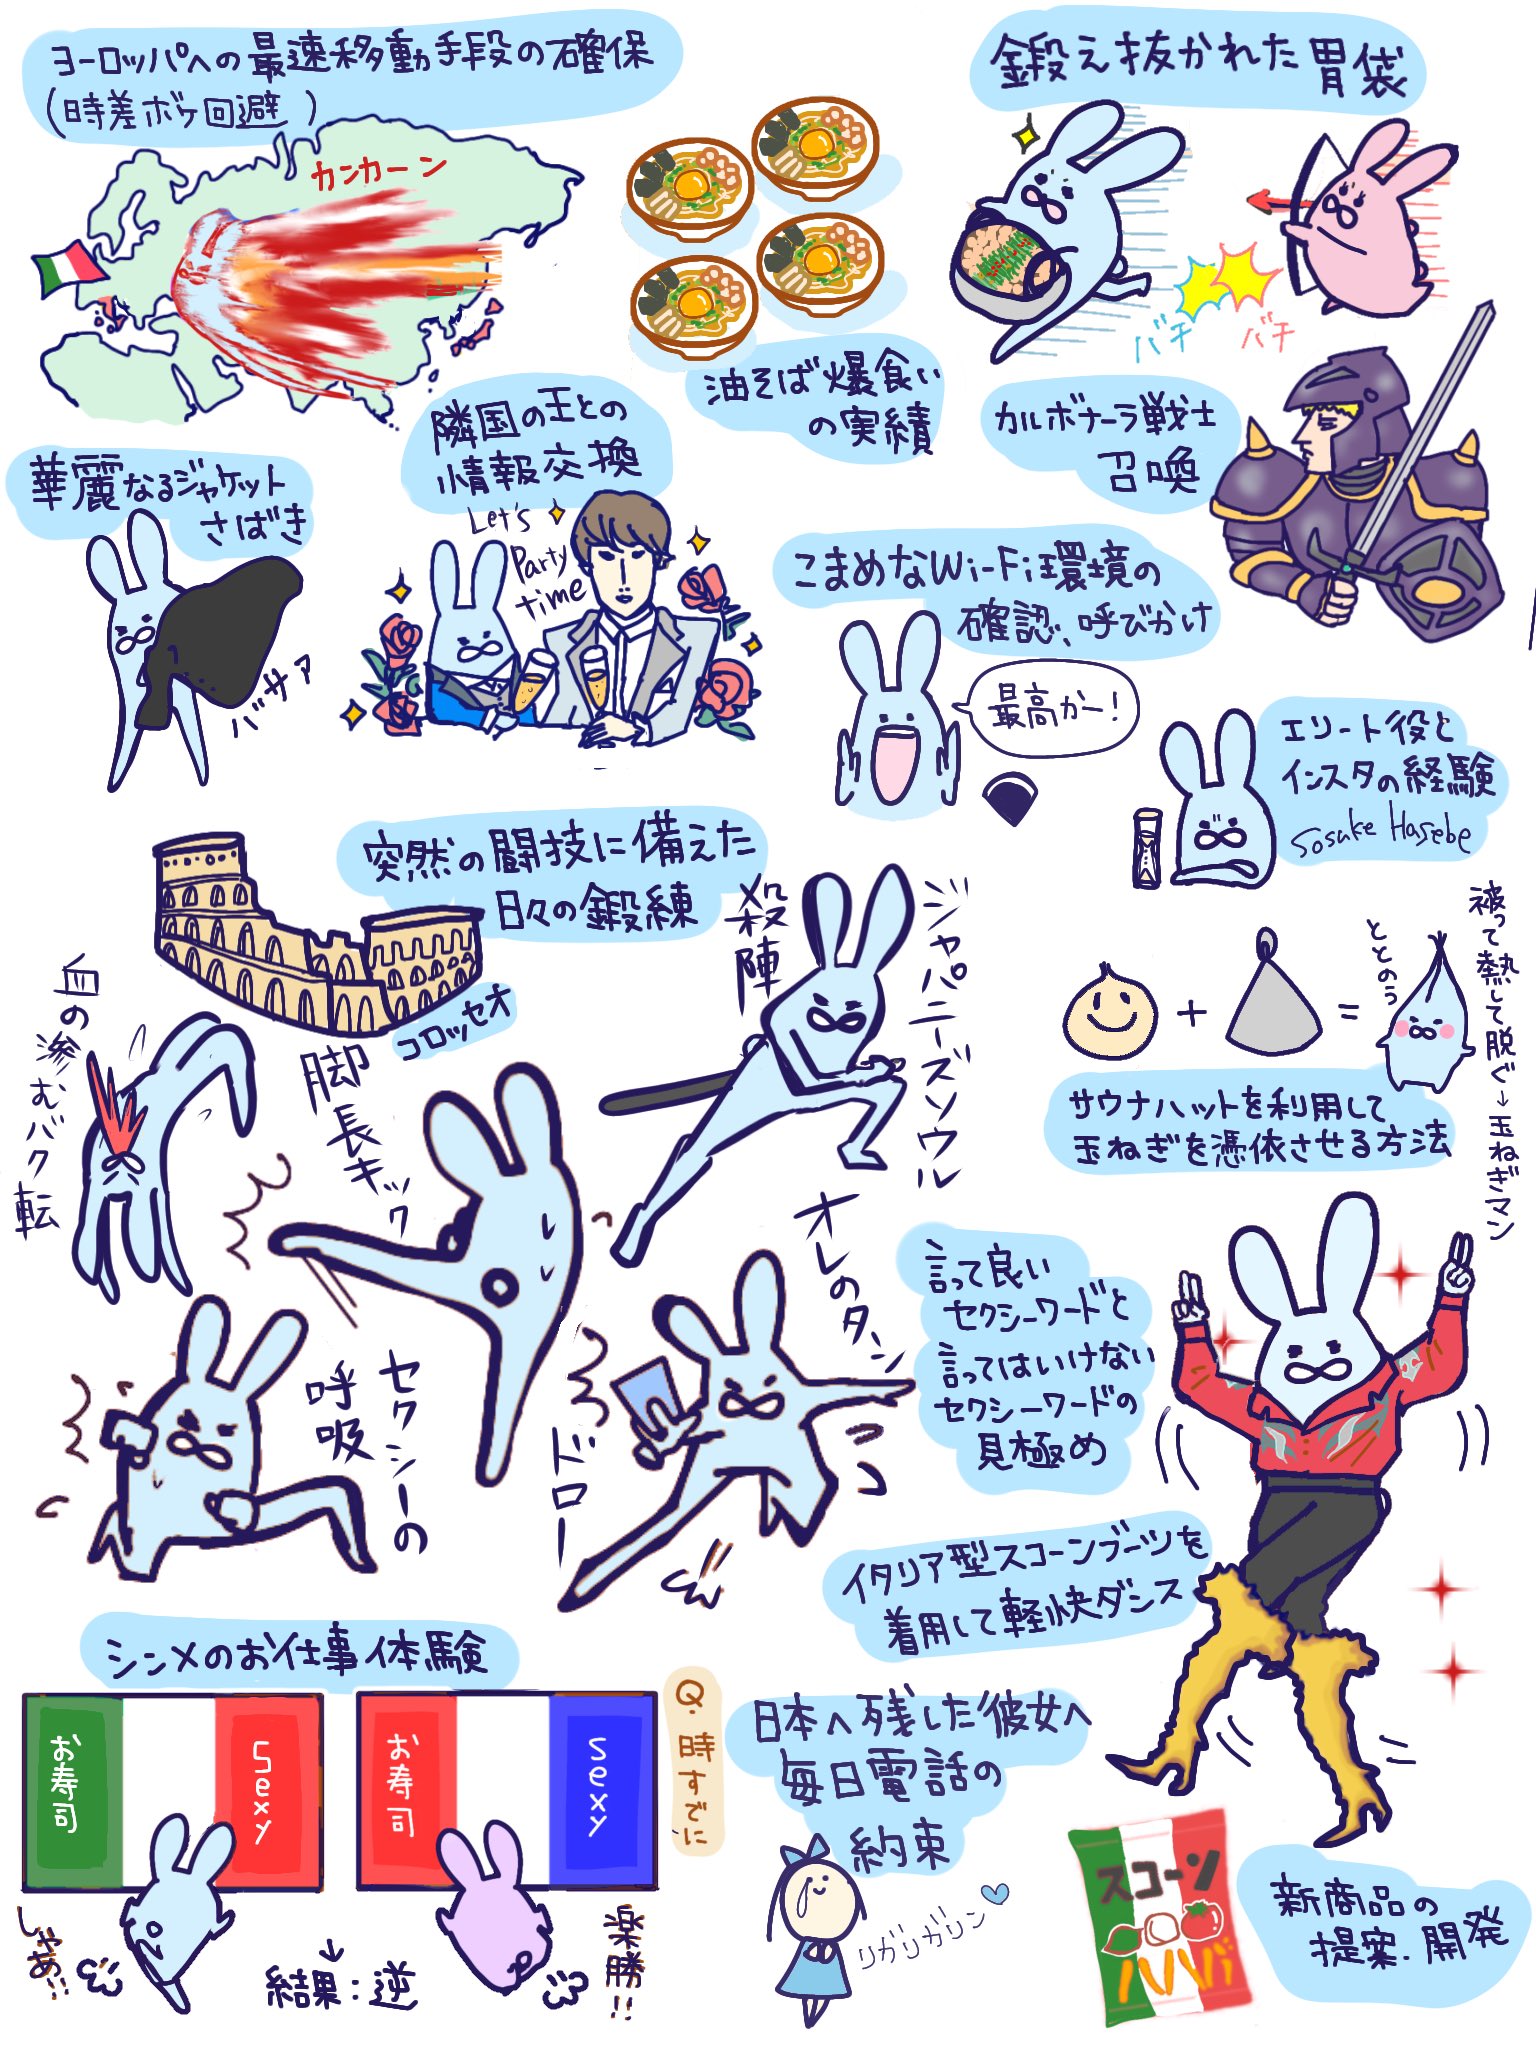 ヨーロッパへの最速移動手段の確保
(時差ボケ回避)
カンカーン
鍛え抜かれた胃袋
バチ
バチ
油そば爆食い
の実績
カルボナーラ戦士
召喚
隣国の王との
情報交換
Let's
Party
time
華麗なるジャケット
さばき
バサァ
こまめなWi-Fi環境の
確認、呼びかけ
最高かー!
エリート役と
インスタの経験
Sosuke Hasebe
突然の闘技に備えた
日々の鍛練
コロッセオ
殺陣
ジャパニーズソウル
血の滲むバク転
脚長キック
+
=
ととのう
被って熱して脱ぐ→玉ねぎマン
サウナハットを利用して
玉ねぎを憑依させる方法
オレのターン
ドロー
セクシーの
呼吸
言って良い
セクシーワードと
言ってはいけない
セクシーワードの
見極め
イタリア型スコーンブーツを
着用して軽快ダンス
シンメのお仕事体験
お寿司
Sexy
お寿司
Sexy
Q.時すでに
しゃあ!!
↓
結果:逆
楽勝!!
日本へ残した彼女へ
毎日電話の
約束
リガリガリン
スコーン
ハバハバ
新商品の
提案・開発